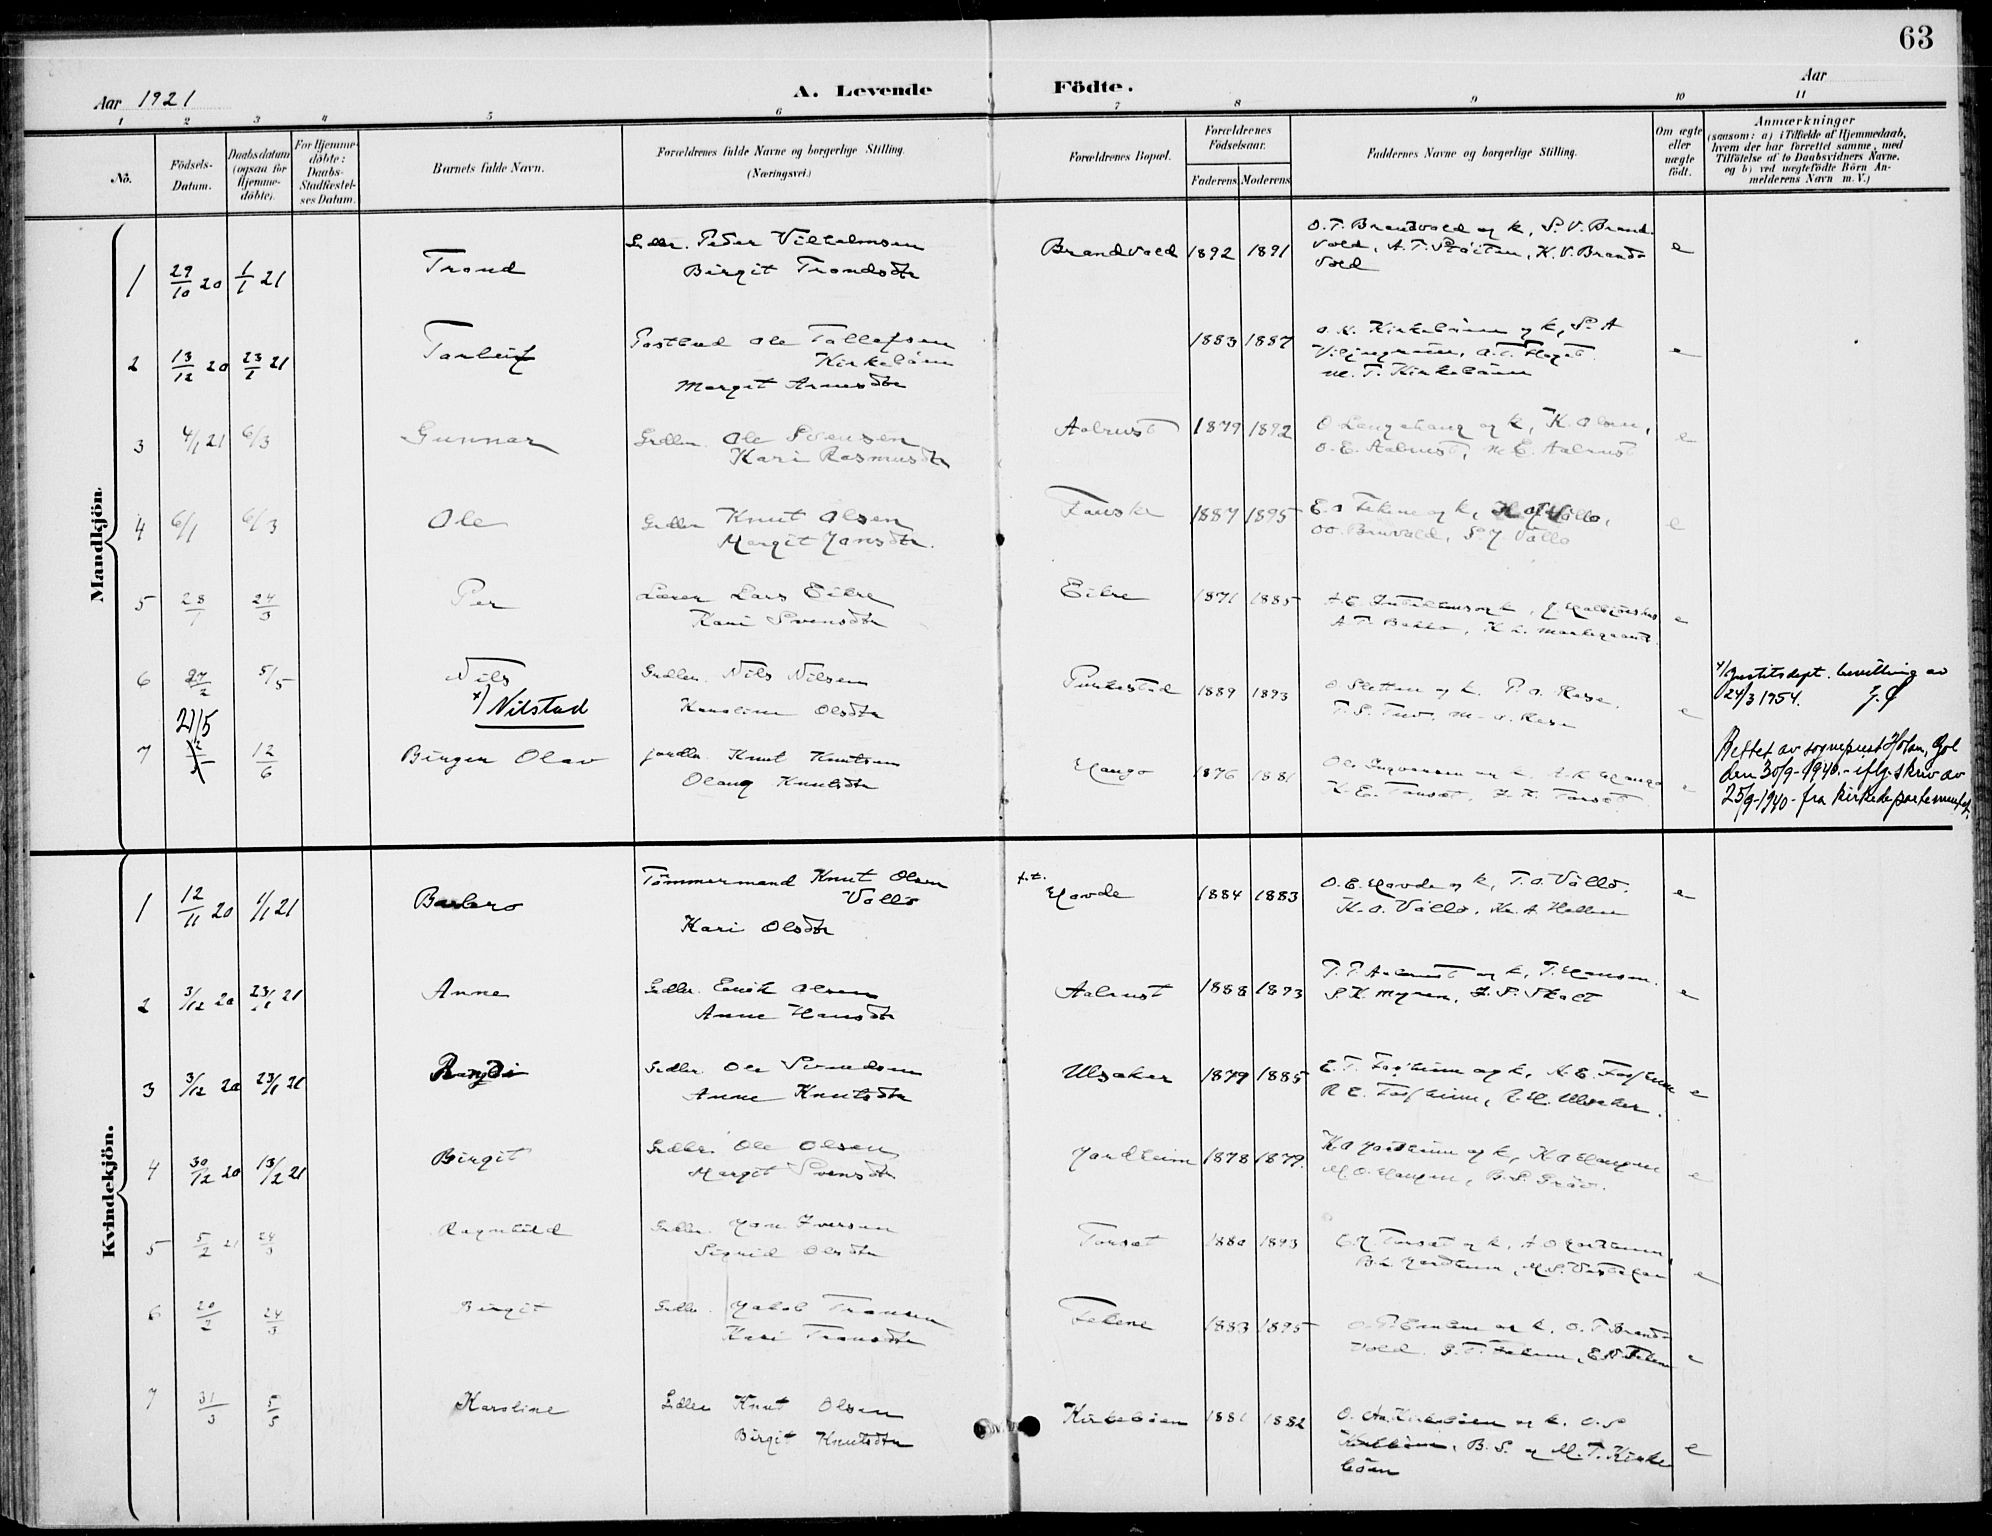 63
Aar 1921
A. Levende
Födte.
Aar
1 2 3 4 5 6 7 8 9 10 11
No.
Födsels-
Datum.
Daabsdatum
(ogsaa for
Hjemme-
döbte).
For Hjemme-
döbte:
Daabs-
Stadfæstel-
ses Datum.
Barnets fulde Navn.
Forældrenes fulde Navne og borgerlige Stilling.
(Næringsvei.)
Forældrenes Bopæl.
Forældrenes
Födselsaar.
Faderens Moderens
Faddernes Navne og borgerlige Stilling.
Om ægte
eller
uægte
födt.
Anmærkninger
(saasom: a) i Tilfælde af Hjemmedaab,
hvem der har forrettet samme, med
Tilföielse af to Daabsvidners Navne,
og b) ved uægtefödte Börn An-
melderens Navn m. V.)
Mandkjön.
1 29/10 20 1/1 21 Trond
Gdbr. Peder Vilhelmsen
Birgit Trondsdtr
Brandvold 1892 1891
O. T. Brandvold og k, S. V. Brand-
vold, A. T. Stöiten, K. V. Brand-
vold
e
2 13/12 20 23/1 21 Torleif
Postbud Ole Tollefsen
Kirkeböen
Margit Arnesdtr
1883 1887
O. N. Kirkeböen og k, S. A
M. T. Kirkeböen
e
3 4/1 21 6/3 Gunnar
Grdbr. Ole Svensen
Kari Rasmusdtr
Aalrust 1879 1892
O Langehaug og k, K. Olsen,
O. E. Aalrust, M E. Aalrust
e
4 6/1 6/3 Ole
Grdbr Knut Olsen
Margit Jonsdtr.
Fauske 1887 1895
E. O Fekene og k,
O O. Bruvold, S J Vallo
e
5 28/1 24/3 Per
Lærer Lars Eikre
Kari Svensdtr
Eikre 1871 1885
A. T. Bakko, K L. Markegaard.
e
6 27/2 5/5 Nils
x) Nilstad
Grdbr. Nils Nilsen
Karoline Olsdtr
1889 1893
O Sletten og k. P. O. Rese,
T. S. Tuv, M. O. Rese
e
x) Justitsdept. bevilling av
24/3 1954.
21/5
7 12/6 Birger Olav
Jordbr. Knut Knutsen
Olaug Knutsdtr
Hango 1876 1881
K. E. Torset, K. Torset
e
Rettet av sogneprest Holm, Gol
den 30/9-1940. - iflg. skriv av
25/9-1940 - fra Kirkedepartementet.
Kvindekjön.
1 12/11 20 1/1 21 Barbro
Tömmermand Knut Olsen
Vallo
Kari Olsdtr
f.t.
Havde 1884 1883
O. E. Havde og k, T. O. Vallo.
K. O. Vallo. Kr. A. Halben
e
2 3/12 20 23/1 21 Anne
Gdbr. Eirik Olsen
Anne Hansdtr
Aalrust 1888 1893
T. T. Aalrust og k, T. Hansen.
S. K. Myren, S. Skalt
e
3 3/12 20 23/1 21 Randi
Grdbr Ole Svendsen
Anne Knutsdtr
Ulsaker 1879 1885
E. T. Fosheim og k, A. E. Fosheim
R E. Fosheim, Ulsaker.
e
4 30/12 20 13/2 21 Birgit
Grdbr. Ole Olsen
Margit Svensdtr
Jordheim 1878 1879.
K O Jordheim og k, K O Haugen
M. O. Haugen, B. S. Gröv.
e
5 5/2 21 24/3 Ragnhild
Grdbr. Jon Iversen
Sigrid Olsdtr
Torset 1880 1893
Torset og k, A O Jordheim,
B L Jordheim,
e
6 20/2 24/3 Birgit
Grdbr. Jakob Tronsen
Kari Tronsdtr
Fekene 1883 1895
og k. O. T. Brand-
vold.
e
7 31/3 5/5 Karoline
Grdbr Knut Olsen
Birgit Knutsdtr
Kirkeböen 1881 1882
O. Kirkeböen og k. O. S
Kirkeböen, B. S. og M. T. Kirke
böen
e